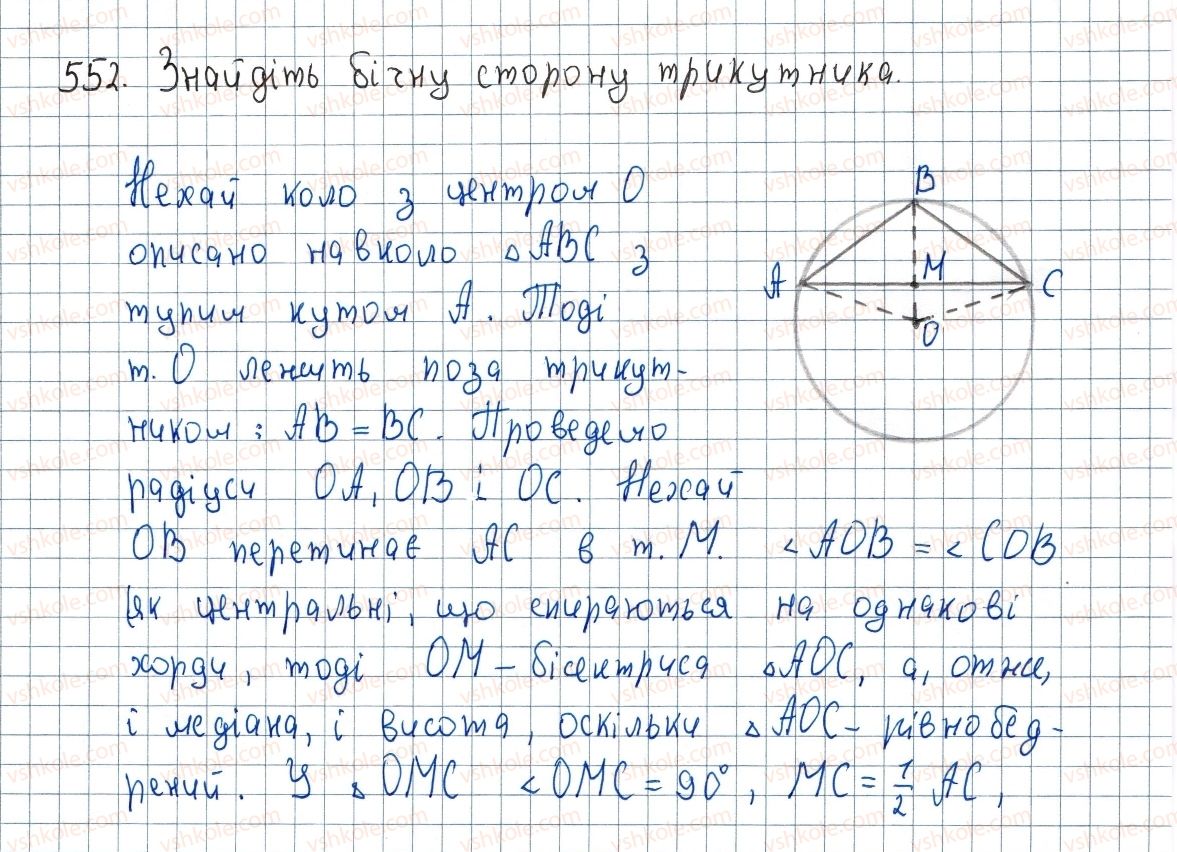 552. Знайдіть бічну сторону трикутника.
Нехай коло з центром O
описано навколо △ABC з
тупим кутом A. Тоді
т. O лежить поза трикут-
ником і AB = BC. Проведемо
радіуси OA, OB і OC. Нехай
OB перетинає AC в т. M. <AOB = <COB
(як центральні, що спираються на однакові
хорди, тоді OM – бісектриса △AOC, а, отже,
і медіана, і висота, оскільки △AOC – рівнобед-
рений. У △OMC <OMC = 90°, MC = 1/2 AC,
B
A
M
C
O
vshkole.com